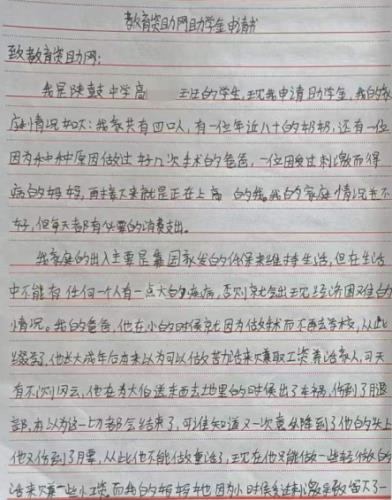 教育资助网助学金申请书
致教育资助网:
我是陕鼓中学高 班的学生,现我申请助学金,我的家
庭情况如下:我家共有四口人,有一位年近八十的奶奶,还有一位
因为种种原因做过好几次手术的爸爸,一位因受过刺激而得
病的妈妈,再接下来就是正在上高 的我。我的家庭情况并不
好,但每天都有必要的消费支出。
我家庭的出入主要是靠国家发的低保来维持生活,但在生活
中不能有任何一个人有一点大的疾病,否则就会出现经济困难的
情况。我的爸爸,他在小的时候就因为做手术而不再去学校,从此
辍学,他长大成年后本来以为可以做苦力活来赚取工资养活家人,可天
有不测风云,他在为大伯送东西去地里的时候出了车祸,伤到了腿
部,本以为这一切都会结束了,可谁知道又一次意外降到了他的头上
他又伤到了腰,从此他不能做重活了,现在他只能做一些轻微的
活来赚一些小工资,而我的妈妈她因为小时候受过刺激导致留下了